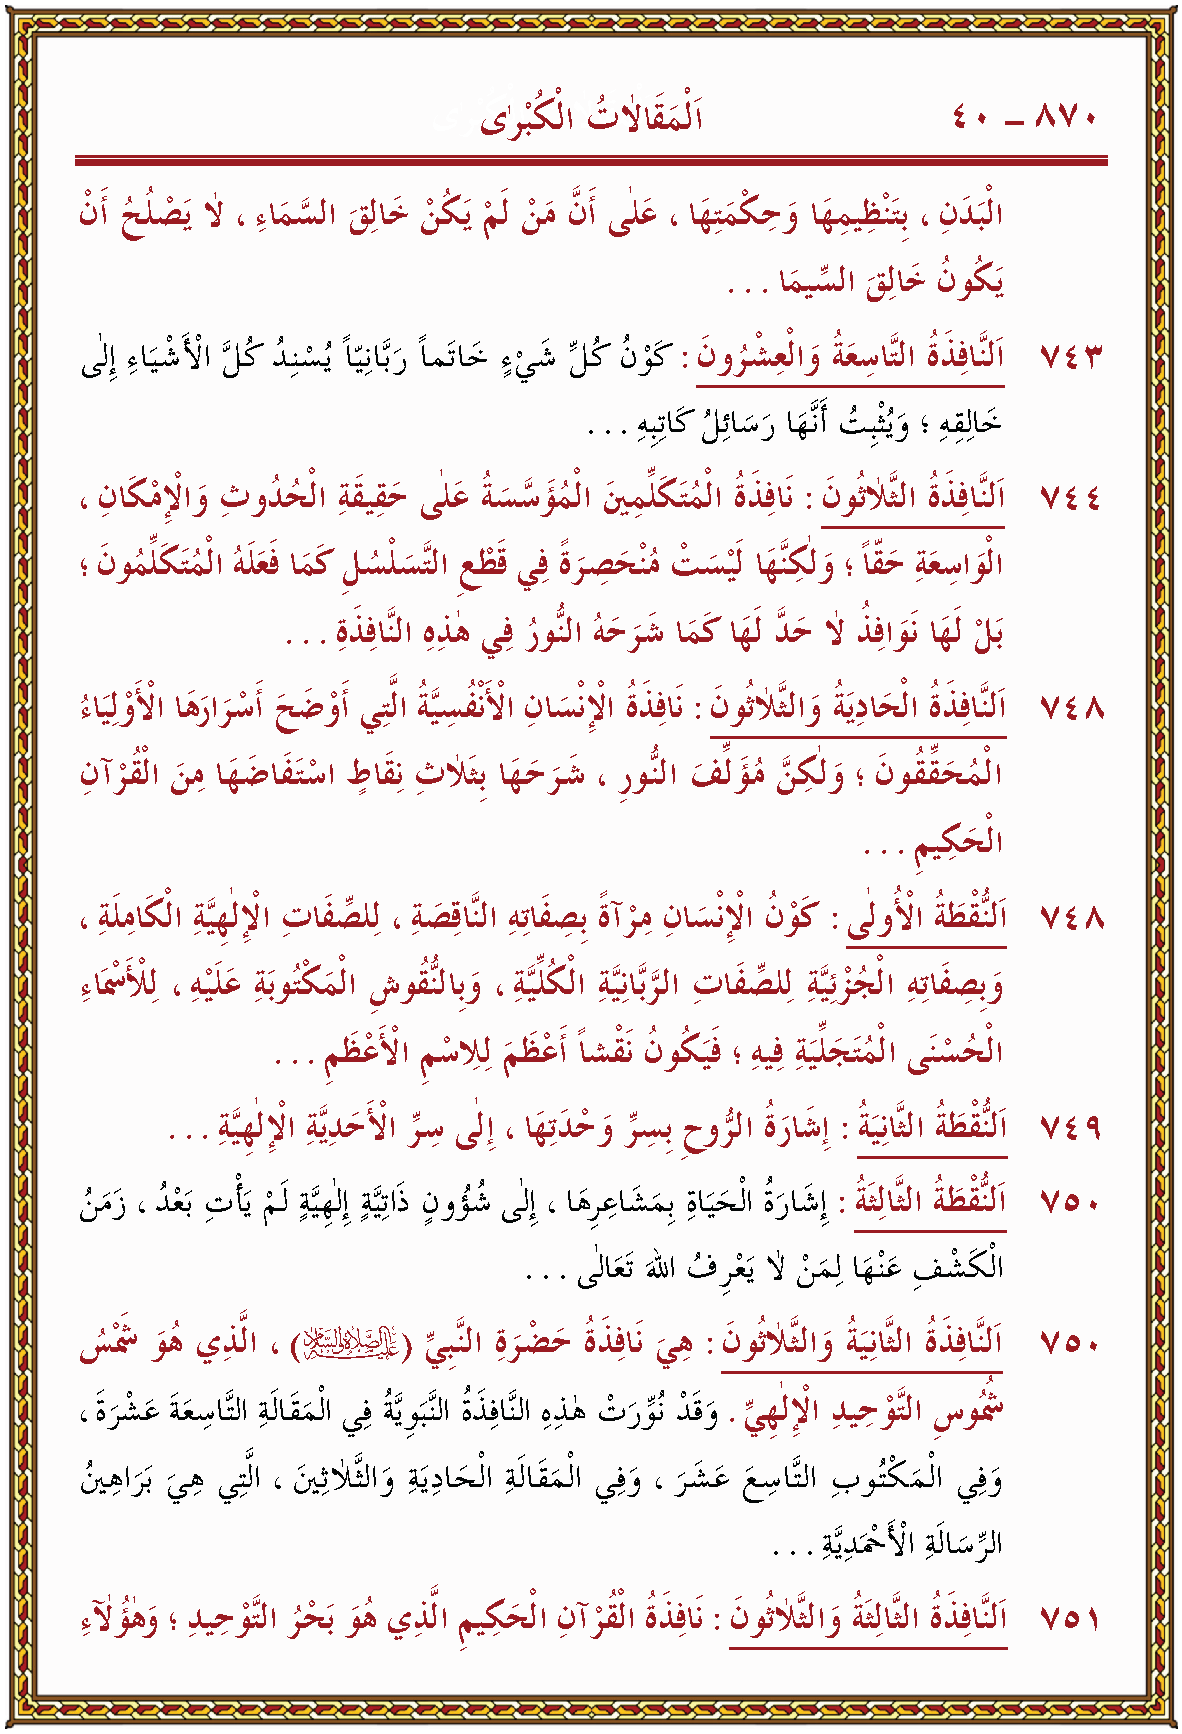 ٨٧٠ ــ ٤٠ اَلْمَقَالَاتُ الْكُبْرٰى
الْبَدَنِ ، بِتَنْظِيمِهَا وَحِكْمَتِهَا ، عَلٰى أَنَّ مَنْ لَمْ يَكُنْ خَالِقَ السَّمَاءِ ، لَا يَصْلُحُ أَنْ
يَكُونُ خَالِقَ السِّيمَا . . .
٧٤٣ اَلنَّافِذَةُ التَّاسِعَةُ وَالْعِشْرُونَ : كَوْنُ كُلِّ شَيْءٍ خَاتَماً رَبَّانِيّاً يُسْنِدُ كُلَّ الْأَشْيَاءِ إِلٰى
خَالِقِهِ ؛ وَيُثْبِتُ أَنَّهَا رَسَائِلُ كَاتِبِهِ . . .
٧٤٤ اَلنَّافِذَةُ الثَّلٰاثُونَ : نَافِذَةُ الْمُتَكَلِّمِينَ الْمُؤَسَّسَةُ عَلٰى حَقِيقَةِ الْحُدُوثِ وَالْإِمْكَانِ ،
الْوَاسِعَةِ حَقّاً ؛ وَلٰكِنَّهَا لَيْسَتْ مُنْحَصِرَةً فِي قَطْعِ التَّسَلْسُلِ كَمَا فَعَلَهُ الْمُتَكَلِّمُونَ ؛
بَلْ لَهَا نَوَافِذُ لَا حَدَّ لَهَا كَمَا شَرَحَهُ النُّورُ فِي هٰذِهِ النَّافِذَةِ . . .
٧٤٨ اَلنَّافِذَةُ الْحَادِيَةُ وَالثَّلٰاثُونَ : نَافِذَةُ الْإِنْسَانِ الْأَنْفُسِيَّةُ الَّتِي أَوْضَحَ أَسْرَارَهَا الْأَوْلِيَاءُ
الْمُحَقِّقُونَ ؛ وَلٰكِنَّ مُؤَلِّفَ النُّورِ ، شَرَحَهَا بِثَلٰاثِ نِقَاطٍ اسْتَفَاضَهَا مِنَ الْقُرْآنِ
الْحَكِيمِ . . .
٧٤٨ اَلنُّقْطَةُ الْأُولٰى : كَوْنُ الْإِنْسَانِ مِرْآةً بِصِفَاتِهِ النَّاقِصَةِ ، لِلصِّفَاتِ الْإِلٰهِيَّةِ الْكَامِلَةِ ،
وَبِصِفَاتِهِ الْجُزْئِيَّةِ لِلصِّفَاتِ الرَّبَّانِيَّةِ الْكُلِّيَّةِ ، وَبِالنُّقُوشِ الْمَكْتُوبَةِ عَلَيْهِ ، لِلْأَسْمَاءِ
الْحُسْنَى الْمُتَجَلِّيَةِ فِيهِ ؛ فَيَكُونُ نَقْشاً أَعْظَمَ لِلِاسْمِ الْأَعْظَمِ . . .
٧٤٩ اَلنُّقْطَةُ الثَّانِيَةُ : إِشَارَةُ الرُّوحِ بِسِرِّ وَحْدَتِهَا ، إِلٰى سِرِّ الْأَحَدِيَّةِ الْإِلٰهِيَّةِ . . .
٧٥٠ اَلنُّقْطَةُ الثَّالِثَةُ : إِشَارَةُ الْحَيَاةِ بِمَشَاعِرِهَا ، إِلٰى شُؤُونٍ ذَاتِيَّةٍ إِلٰهِيَّةٍ لَمْ يَأْتِ بَعْدُ ، زَمَنُ
الْكَشْفِ عَنْهَا لِمَنْ لَا يَعْرِفُ اللهَ تَعَالٰى . . .
٧٥٠ اَلنَّافِذَةُ الثَّانِيَةُ وَالثَّلٰاثُونَ : هِيَ نَافِذَةُ حَضْرَةِ النَّبِيِّ (عَلَيْهِ الصَّلَاةُ وَالسَّلَامُ) ، الَّذِي هُوَ شَمْسُ
شُمُوسِ التَّوْحِيدِ الْإِلٰهِيِّ . وَقَدْ نُوِّرَتْ هٰذِهِ النَّافِذَةُ النَّبَوِيَّةُ فِي الْمَقَالَةِ التَّاسِعَةَ عَشْرَةَ ،
وَفِي الْمَكْتُوبِ التَّاسِعَ عَشَرَ ، وَفِي الْمَقَالَةِ الْحَادِيَةِ وَالثَّلٰاثِينَ ، الَّتِي هِيَ بَرَاهِينُ
الرِّسَالَةِ الْأَحْمَدِيَّةِ . . .
٧٥١ اَلنَّافِذَةُ الثَّالِثَةُ وَالثَّلٰاثُونَ : نَافِذَةُ الْقُرْآنِ الْحَكِيمِ الَّذِي هُوَ بَحْرُ التَّوْحِيدِ ؛ وَهٰؤُلَآءِ